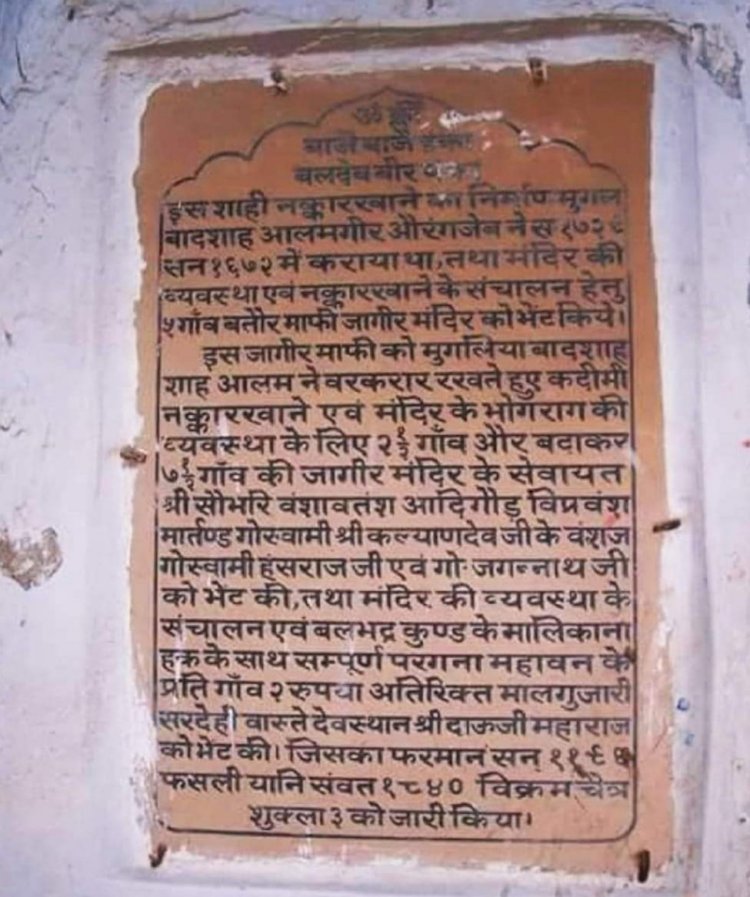 ॐ
बाजे बाजे डंका
बलदेव वीर
इस शाही नक्कारखाने का निर्माण मुगल
बादशाह आलमगीर औरंगजेब ने स १७२९
सन १६७२ में कराया था, तथा मंदिर की
व्यवस्था एवं नक्कारखाने के संचालन हेतु
५ गाँव बतौर माफी जागीर मंदिर को भेंट किये।
इस जागीर माफी को मुगलिया बादशाह
शाह आलम ने वरकरार रखते हुए कदीमी
नक्कारखाने एवं मंदिर के भोगराग की
व्यवस्था के लिए २½ गाँव और बढाकर
७½ गाँव की जागीर मंदिर के सेवायत
श्री सौभरि वंशावतंश आदिगौड़ विप्रवंश
मार्तण्ड गोस्वामी श्री कल्याणदेव जी के वंशज
गोस्वामी हंसराज जी एवं गो॰ जगन्नाथ जी
को भेंट की, तथा मंदिर की व्यवस्था के
संचालन एवं बलभद्र कुण्ड के मालिकाना
हक के साथ सम्पूर्ण परगना महावन के
प्रति गाँव २ रुपया अतिरिक्त मालगुजारी
सरदेही वास्ते देवस्थान श्री दाऊजी महाराज
को भेंट की। जिसका फरमान सन्
फसली यानि संवत १८४० विक्रम चैत्र
शुक्ला ३ को जारी किया।